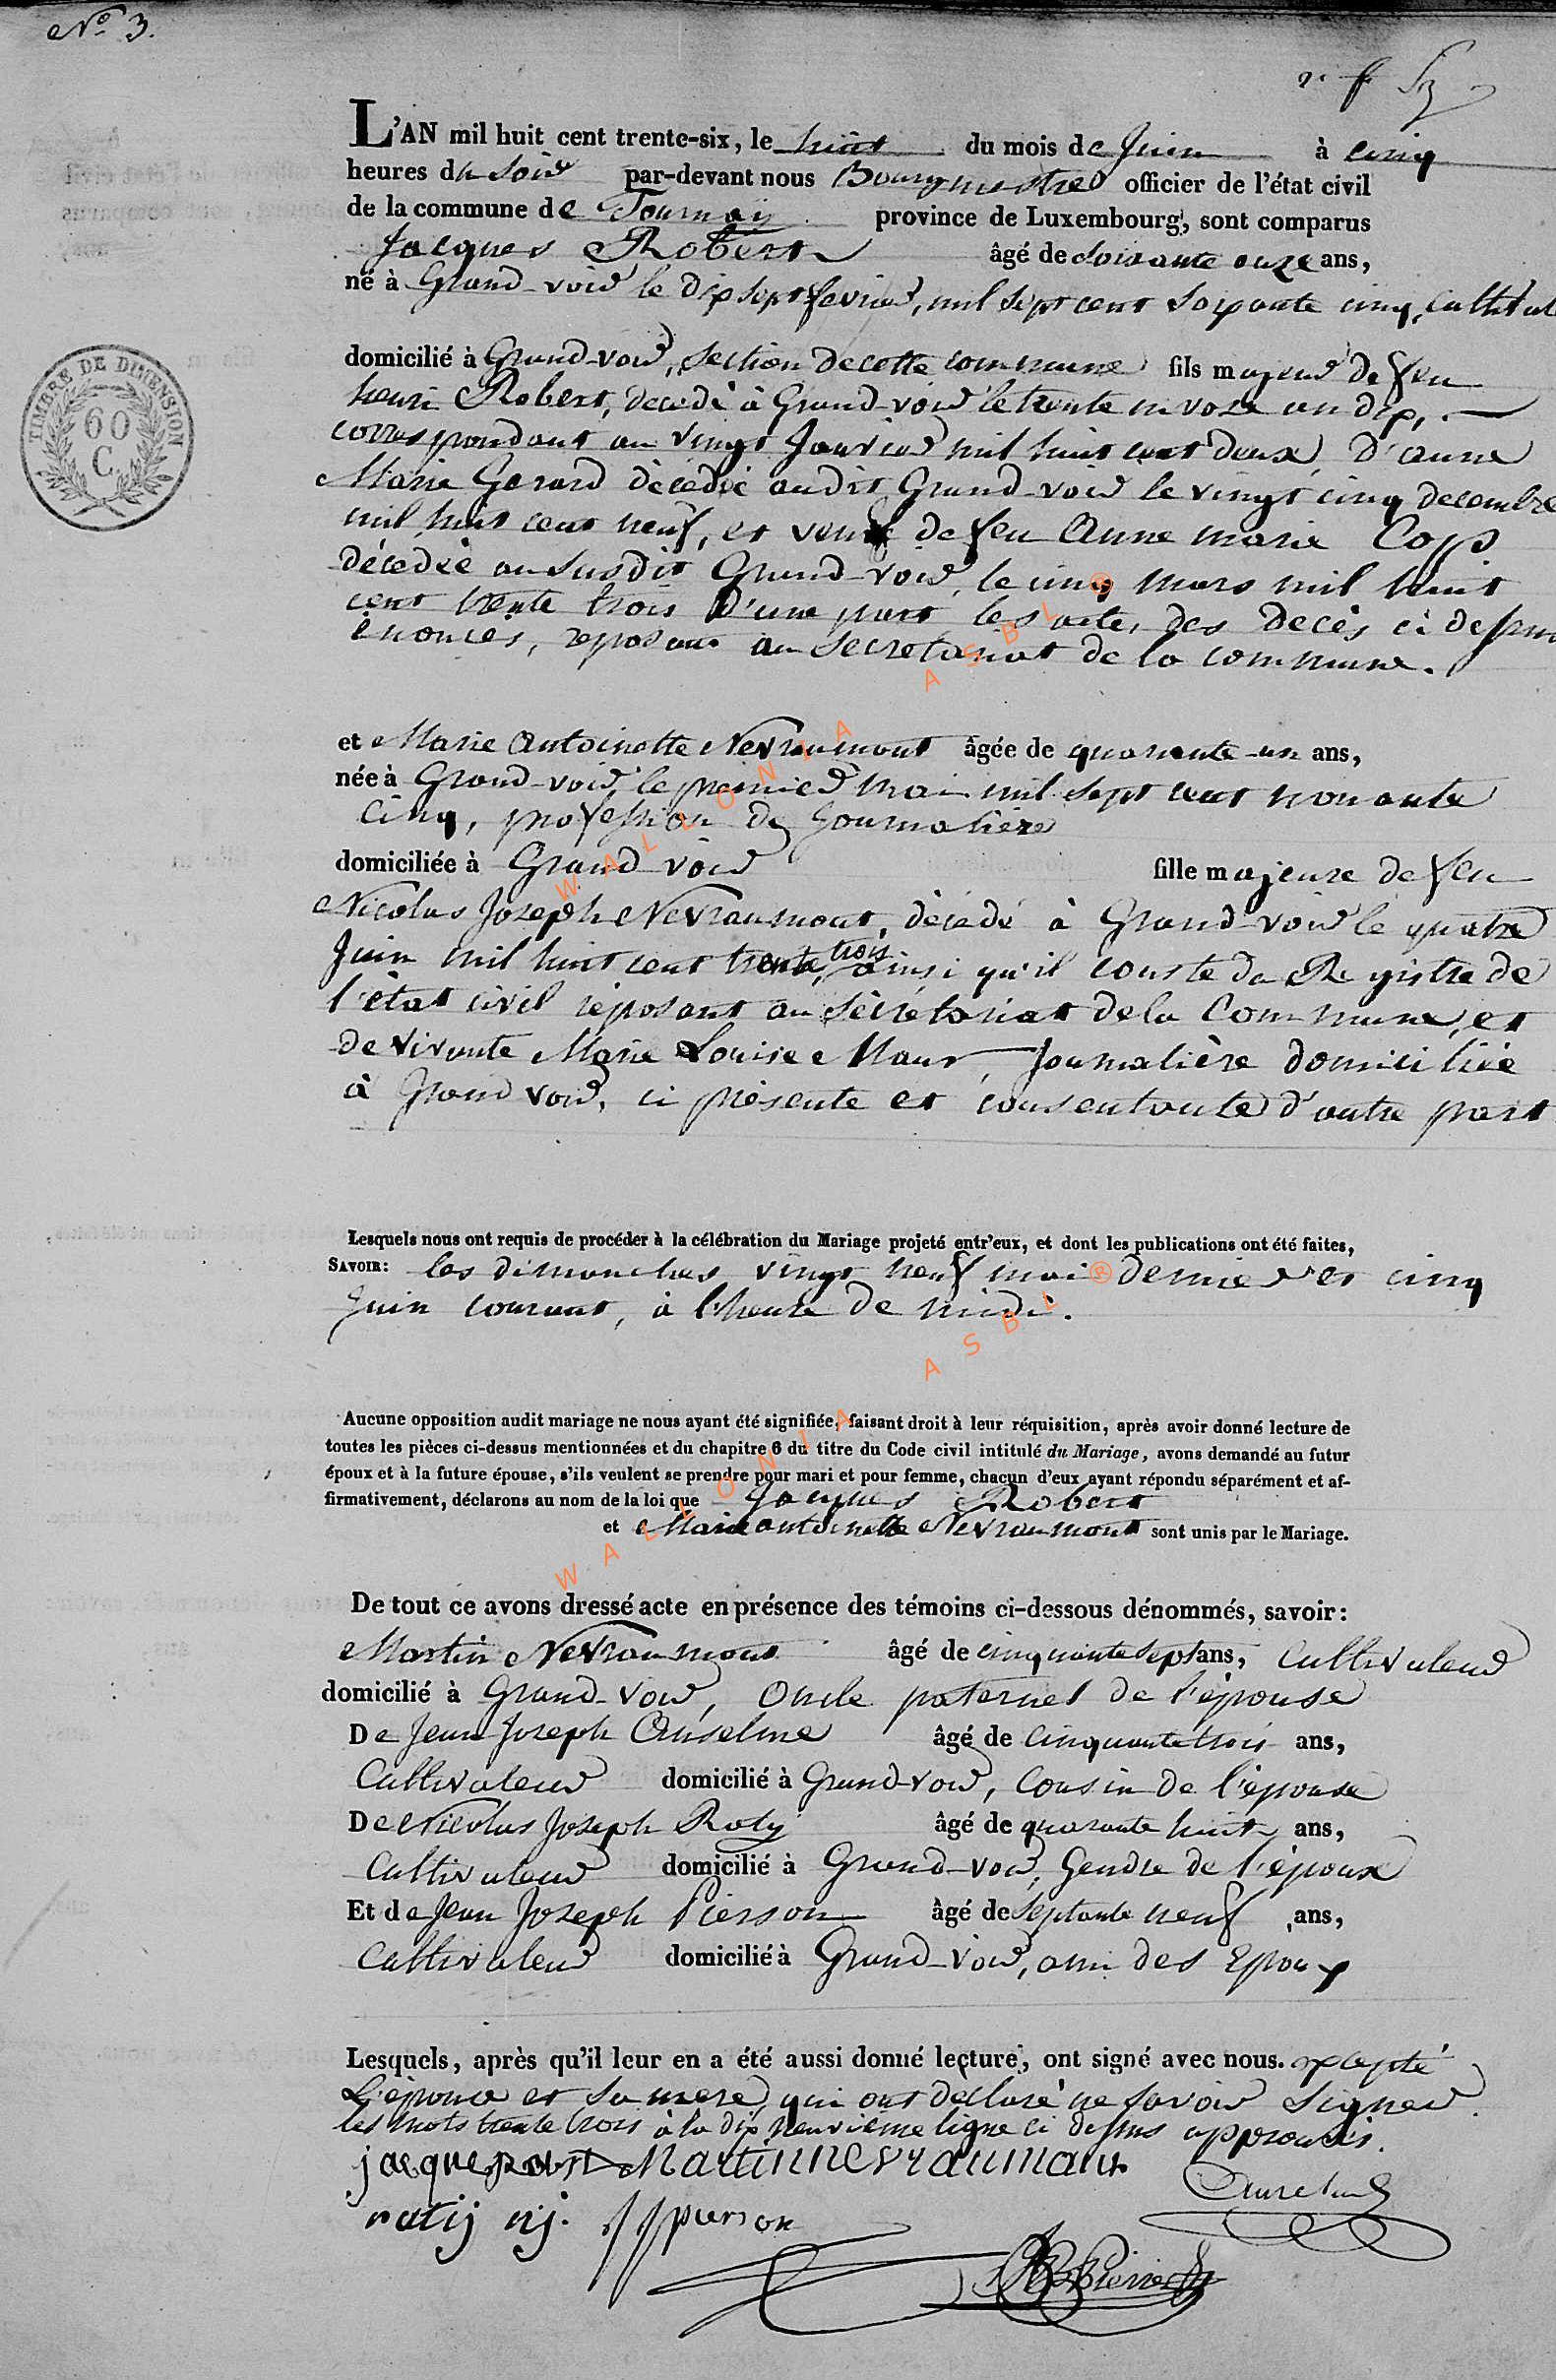 N.° 3.
L'AN mil huit cent trente-six, le huit du mois de Juin à cinq
heures du Soir par-devant nous Bourgmestre officier de l'état civil
de la commune de Tournay province de Luxembourg, sont comparus
Jacques Robert âgé de Soixante onze ans,
né à Grand-voir le dix sept fevrier, mil sept cent soixante cinq, Cultivat
domicilié à Grand-voir, section de cette commune fils majeur de feu
henri Robert, decedé à Grand-voir le trente nivose an dix,
correspondant au vingt Janvier mil huit cent deux, d'anne
Marie Gerard décédée audit Grand-voir le vingt cinq decembre
mil huit cent neuf, et veuf de feu Anne marie Cop
décedée au susdit Grand-voir, le cinq mars mil huit
cent trente trois d'une part les actes des decès ci dessus
énoncés, reposant au secretariat de la commune.
et Marie Antoinette Nevraumont âgée de quarante-un ans,
née à Grand-voir, le premier mai mil sept cent nonante
Cinq, profession de Journalière
domiciliée à Grand voir fille majeure de feu
Nicolas Joseph Nevraumont, décédé à Grand-voir le quatre
Juin mil huit cent trente trois, ainsi qu'il conste du Registre de
l'état civil reposant au Sécrétariat de la Commune, et
de vivante Marie Louise Maur, Journalière domiciliée
à Grand voir, ci présente et consentante d'autre part
Lesquels nous ont requis de procéder à la célébration du Mariage projeté entr'eux, et dont les publications ont été faites,
SAVOIR: les dimanches vingt neuf mai dernier et cinq
Juin courant, à l'heure de midi.
Aucune opposition audit mariage ne nous ayant été signifiée, faisant droit à leur réquisition, après avoir donné lecture de
toutes les pièces ci-dessus mentionnées et du chapitre 6 du titre du Code civil intitulé du Mariage, avons demandé au futur
époux et à la future épouse, s'ils veulent se prendre pour mari et pour femme, chacun d'eux ayant répondu séparément et af-
firmativement, déclarons au nom de la loi que Jacques Robert
et Marie antoinette Nevraumont sont unis par le Mariage.
De tout ce avons dressé acte en présence des témoins ci-dessous dénommés, savoir:
Martin Nevraumont âgé de cinquante sept ans, Cultivateur
domicilié à Grand-voir, Oncle paternel de l'épouse
De Jean Joseph Anselme âgé de Cinquante trois ans,
Cultivateur domicilié à Grand-voir, Cousin de l'épouse
De Nicolas Joseph Roty âgé de quarante huit ans,
Cultivateur domicilié à Grand-voir, Gendre de l'époux
Et de Jean Joseph Pierson âgé de Septante neuf ans,
Cultivateur domicilié à Grand-voir, ami des Epoux
Lesquels, après qu'il leur en a été aussi donné lecture, ont signé avec nous. excepté
L'épouse et sa mere, qui ont declaré ne savoir Signer.
les mots trente trois à la dix neuvième ligne ci dessus approuvés.
Martin nevraumont
rotij nj. JJ pierson
TIMBRE DE DIMENSION
60
C.
WALLONIA ASBL ®
WALLONIA ASBL ®